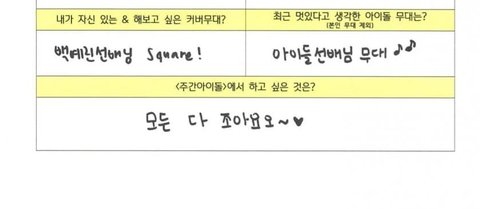 내가 자신 있는 & 해보고 싶은 커버무대?
최근 멋있다고 생각한 아이돌 무대는?
(본인 무대 제외)
백예린선배님 Square!
아이들선배님 무대♪♪
<주간아이돌>에서 하고 싶은 것은?
모든 다 조아요오~♥